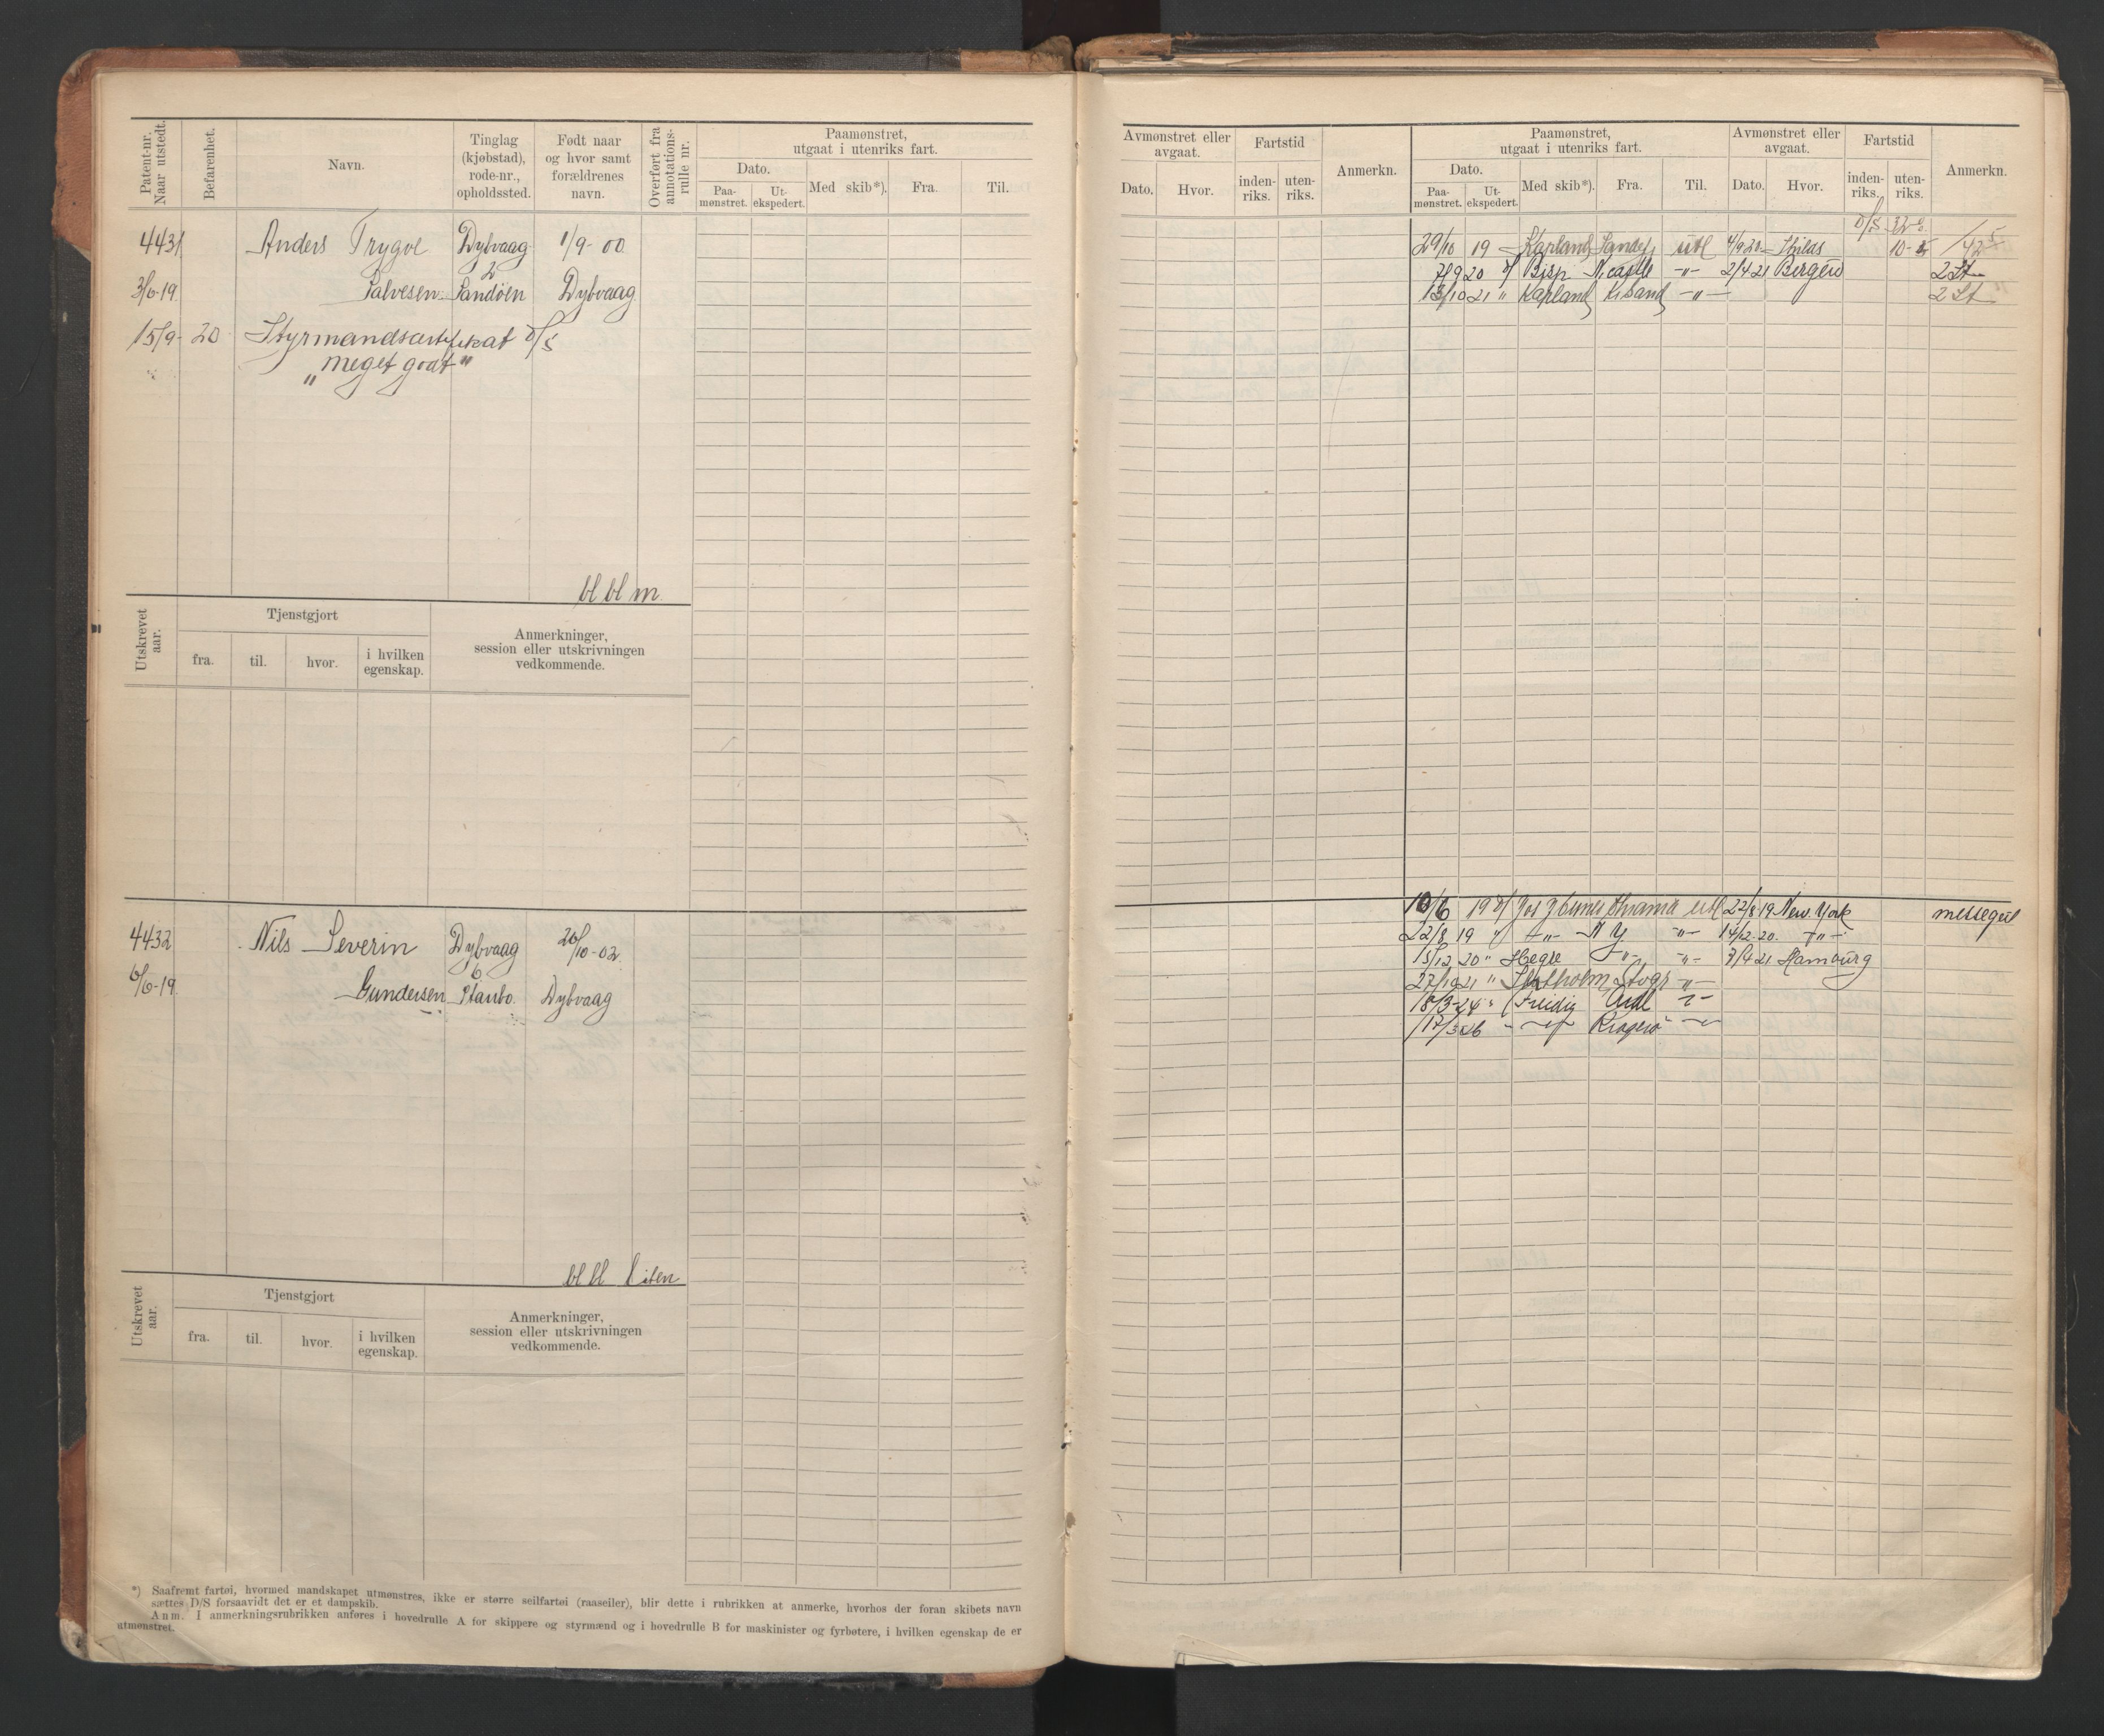 Patent-nr. Naar utstedt.
Befarenhet.
Navn.
Tinglag (kjøbstad), rode-nr., opholdssted.
Født naar og hvor samt forældrenes navn.
Overført fra annotations-rulle nr.
Paamønstret, utgaat i utenriks fart.
Dato.
Paa-mønstret.
Ut-ekspedert.
Med skib*).
Fra.
Til.
4431 Anders Trygve Dybvaag 1/9-00
2
3/6-19 Salvesen Sandøen Dybvaag
15/9-20 Styrmandscertifikat D/S
"meget godt"
bl bl m
Utskrevet aar.
Tjenstgjort
fra. til. hvor. i hvilken egenskap.
Anmerkninger, session eller utskrivningen vedkommende.
4432 Nils Severin Dybvaag 20/10-02
6
6/6-19 Gundersen Staubo. Dybvaag
bl bl liten
Utskrevet aar.
Tjenstgjort
fra. til. hvor. i hvilken egenskap.
Anmerkninger, session eller utskrivningen vedkommende.
*) Saafremt fartøi, hvormed mandskapet utmønstres, ikke er større seilfartøi (raaseiler), blir dette i rubrikken at anmerke, hvorhos der foran skibets navn
sættes D/S forsaavidt det er et dampskib.
Anm. I anmerkningsrubrikken anføres i hovedrulle A for skippere og styrmænd og i hovedrulle B for maskinister og fyrbøtere, i hvilken egenskap de er
utmønstret.
Avmønstret eller avgaat.
Dato. Hvor.
Fartstid
inden-riks. uten-riks.
Anmerkn.
Paamønstret, utgaat i utenriks fart.
Dato.
Paa-mønstret. Ut-ekspedert.
Med skib*). Fra. Til.
Avmønstret eller avgaat.
Dato. Hvor.
Fartstid
inden-riks. uten-riks.
Anmerkn.
D/S
29/10 19 Kapland Sandef. utl 4/9 20
20 Bisp N.castle -"- 2/4 21 Bergen 2 St
13/10 21 " Kapland Krsand -"- 2 St
10/6 19 utl 22/8 19 New York messegut
22/8 19 -"- N Y -"- 14/12 20. -"-
15/12 20 " Hegre -"- -"- 21 Hamburg
27/10 21 "
18/3-24 " Freidig -"-
17/3 26 -"- Kragerø -"-